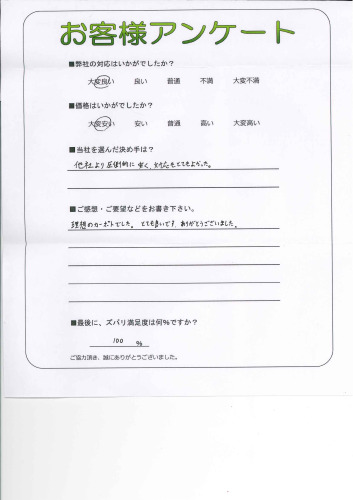 お客様アンケート
■弊社の対応はいかがでしたか？
大変良い 良い 普通 不満 大変不満
■価格はいかがでしたか？
大変安い 安い 普通 高い 大変高い
■当社を選んだ決め手は？
他社より圧倒的に安く、対応もとてもよかった。
■ご感想・ご要望などをお書き下さい。
理想のカーポートでした。とても良いです。ありがとうございました。
■最後に、ズバリ満足度は何%ですか？
100 %
ご協力頂き、誠にありがとうございました。